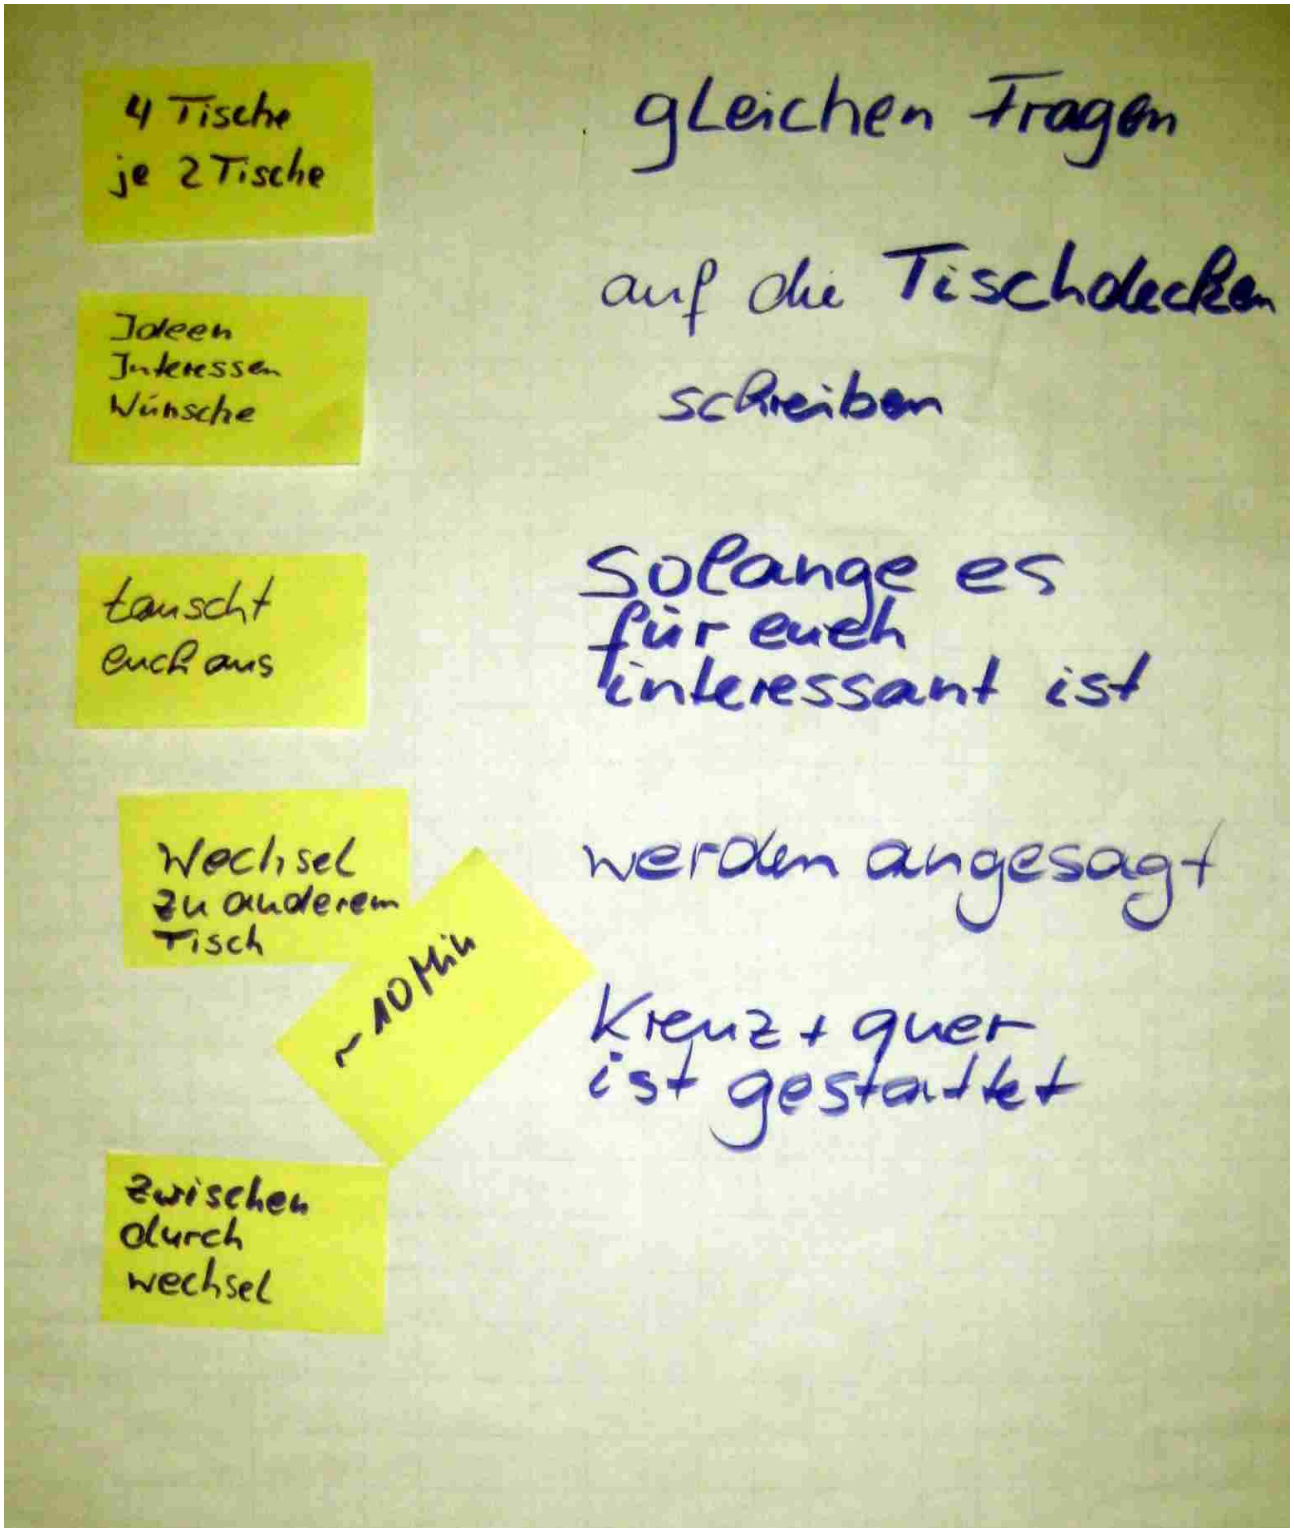 4 Tische
je 2 Tische
gleichen Fragen
Ideen
Interessen
Wünsche
auf die Tischdecken
schreiben
tauscht
euch aus
solange es
für euch
interessant ist
Wechsel
zu anderem
Tisch
~ 10 Min
werden angesagt
Kreuz + quer
ist gestattet
zwischen
durch
wechsel